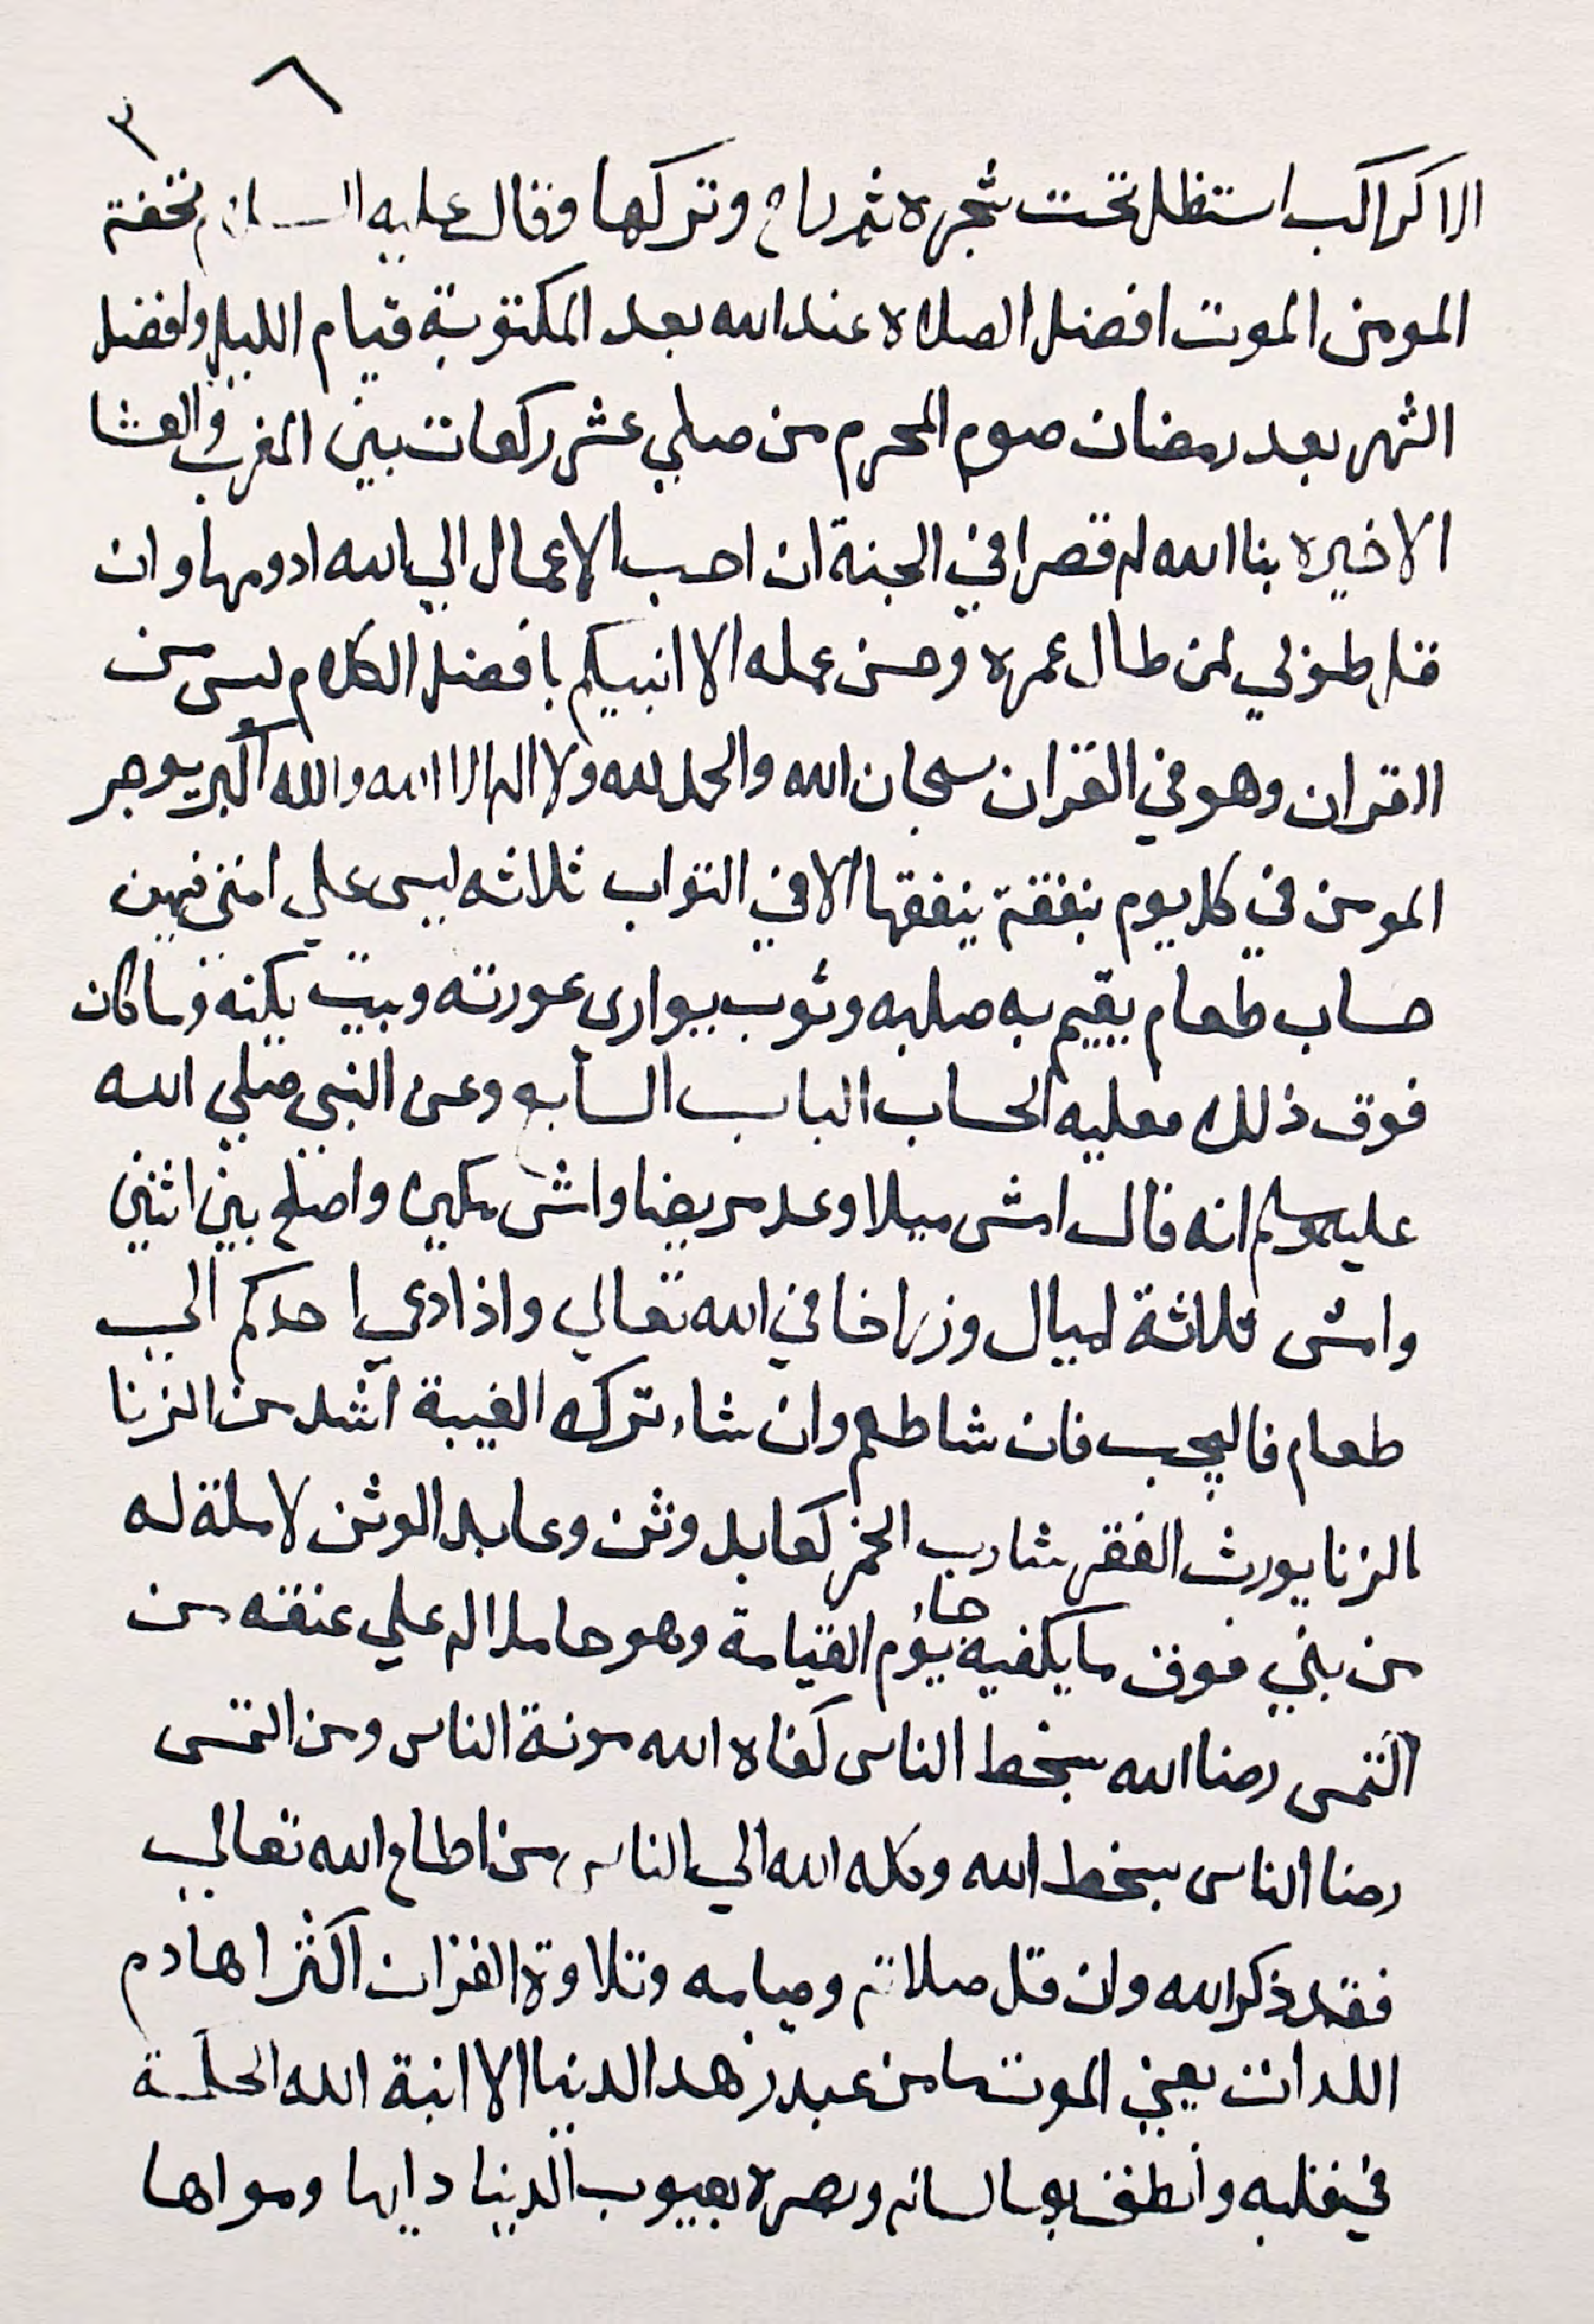 ٦
٣
الا كراكب استظل تحت شجره ثم راح وتركها وقال عليه السلام تحفة
المومن الموت افضل الصلاة عند الله بعد المكتوبة قيام الليل وافضل
الشهر بعد رمضان صوم المحرم من صلي عشر ركعات بين المغرب والعشا
الاخيره بنا الله له قصرا في الجنة ان احب الاعمال الي الله ادومها وان
قل طوبي لمن طال عمره وحسن عمله الا انبيكم بافضل الكلام ليس من
القران وهو في القران سبحان الله والحمد لله ولا اله الا الله والله اكبر يوجر
المومن في كل يوم بنفقة ينفقها الا في التراب ثلاثه ليس علي امتي فيهن
حساب طعام يقيم به صلبه وثوب يواري عورته وبيت يكنه وما كان
فوق ذلك فعليه الحساب الباب السابع وعن النبي صلي الله
عليه وسلم انه قال امش ميلا وعد مريضا وامش ميلين واصلح بين اثنين
وامش ثلاثة اميال وزر اخا في الله تعالي واذا دعي احدكم الي
طعام فاليجب فان شا طعم وان شاء ترك الغيبة اشد من الزنا
الزنا يورث الفقر شارب الخمر كعابد وثن وعابد الوثن لا ملة له
من بني فوق ما يكفيه جاء يوم القيامة وهو حاملا له علي عنقه من
التمس رضا الله بسخط الناس كفاه الله مونة الناس ومن التمس
رضا الناس بسخط الله وكله الله الي الناس من اطاع الله تعالي
فقد ذكر الله وان قل صلاته وصيامه وتلاوة القران اكثرا هادم
اللدات يعني الموت ما من عبد زهد الدنيا الا انبة الله الحكمة
في قلبه وانطق بها لسانه وبصره بعيوب الدنيا دايها ودواها